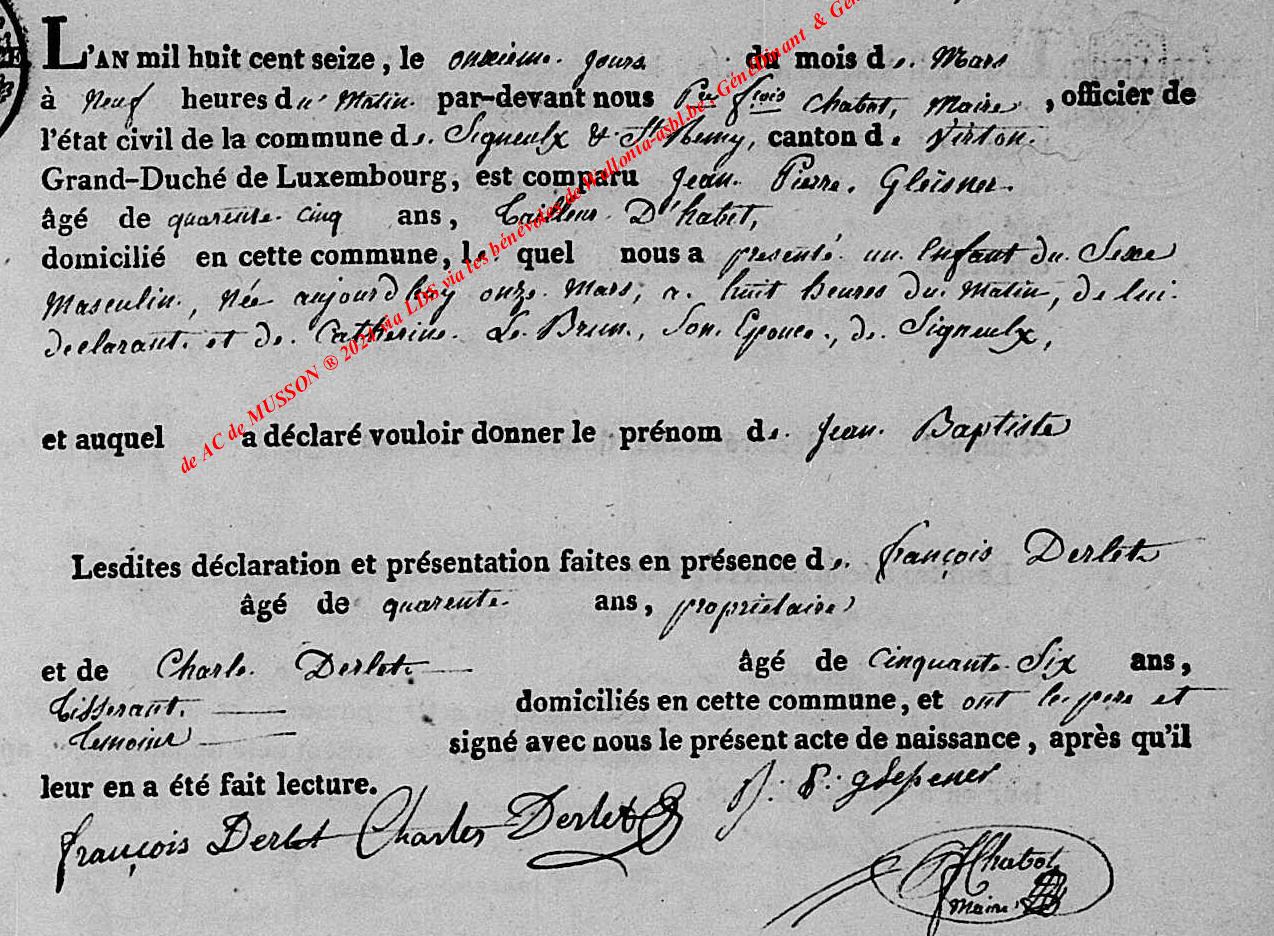 L'AN mil huit cent seize, le onzieme jours du mois de Mars
à Neuf heures du Matin par-devant nous Pre fçois Chabot, Maire, officier de
l'état civil de la commune de Signeulx & St Remy, canton de Virton.
Grand-Duché de Luxembourg, est comparu Jean Pierre Gleisner.
âgé de quarente cinq ans, tailleur D'habet,
domicilié en cette commune, le quel nous a presenté un Enfant du Sexe
Masculin, née aujourd'huy onze Mars, a huit heures du Matin, de lui
declarant et de Catherine Le Brun, Son Epouce, de Signeulx,
et auquel a déclaré vouloir donner le prénom de Jean Baptiste
Lesdites déclaration et présentation faites en présence de françois Derlet
âgé de quarente ans, propriétaire
et de Charle Derlet âgé de Cinquante Six ans,
tisserant domiciliés en cette commune, et ont le pere et
temoins signé avec nous le présent acte de naissance, après qu'il
leur en a été fait lecture.
françois Derlet Charles Derlet
Chabot
Maire
de AC de MUSSON ® 2024 via LDS via les bénévoles de Wallonia-asbl.be, GénéDinant & Gén